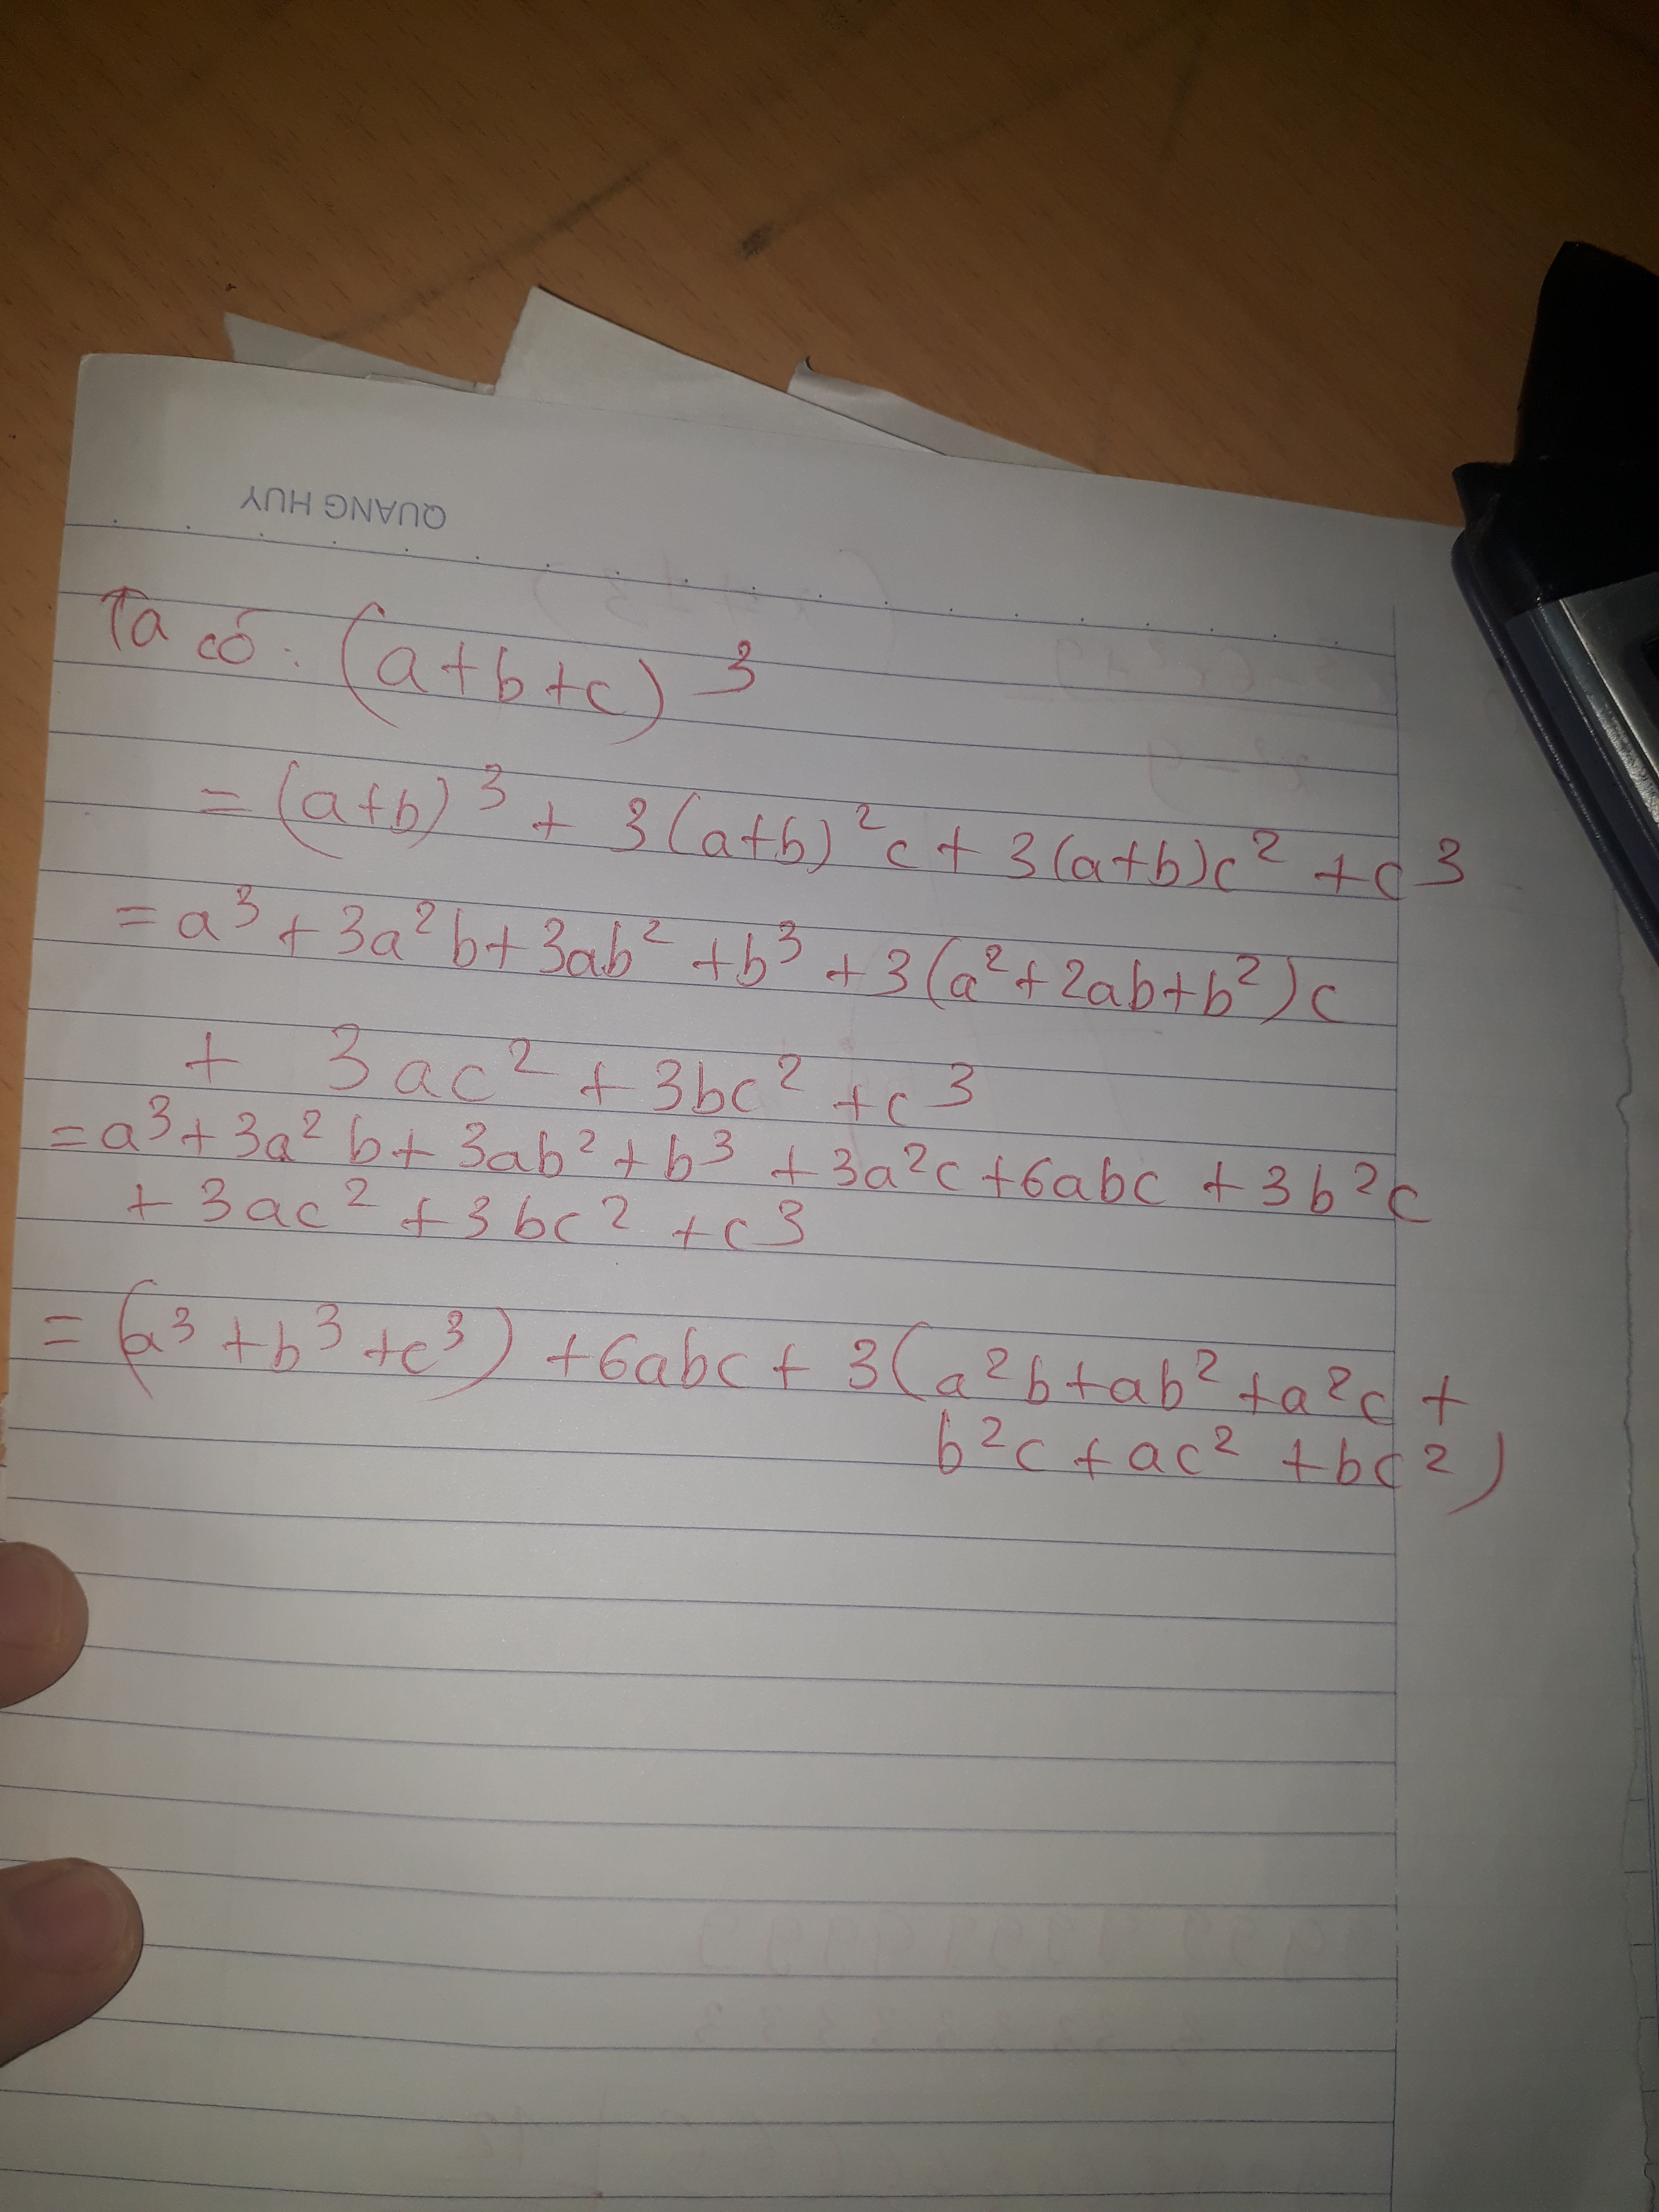 QUANG HUY
Ta có: (a+b+c)³
= (a+b)³ + 3(a+b)²c + 3(a+b)c² + c³
= a³ + 3a²b + 3ab² + b³ + 3(a² + 2ab + b²)c
+ 3ac² + 3bc² + c³
= a³ + 3a²b + 3ab² + b³ + 3a²c + 6abc + 3b²c
+ 3ac² + 3bc² + c³
= (a³ + b³ + c³) + 6abc + 3(a²b + ab² + a²c +
b²c + ac² + bc²)